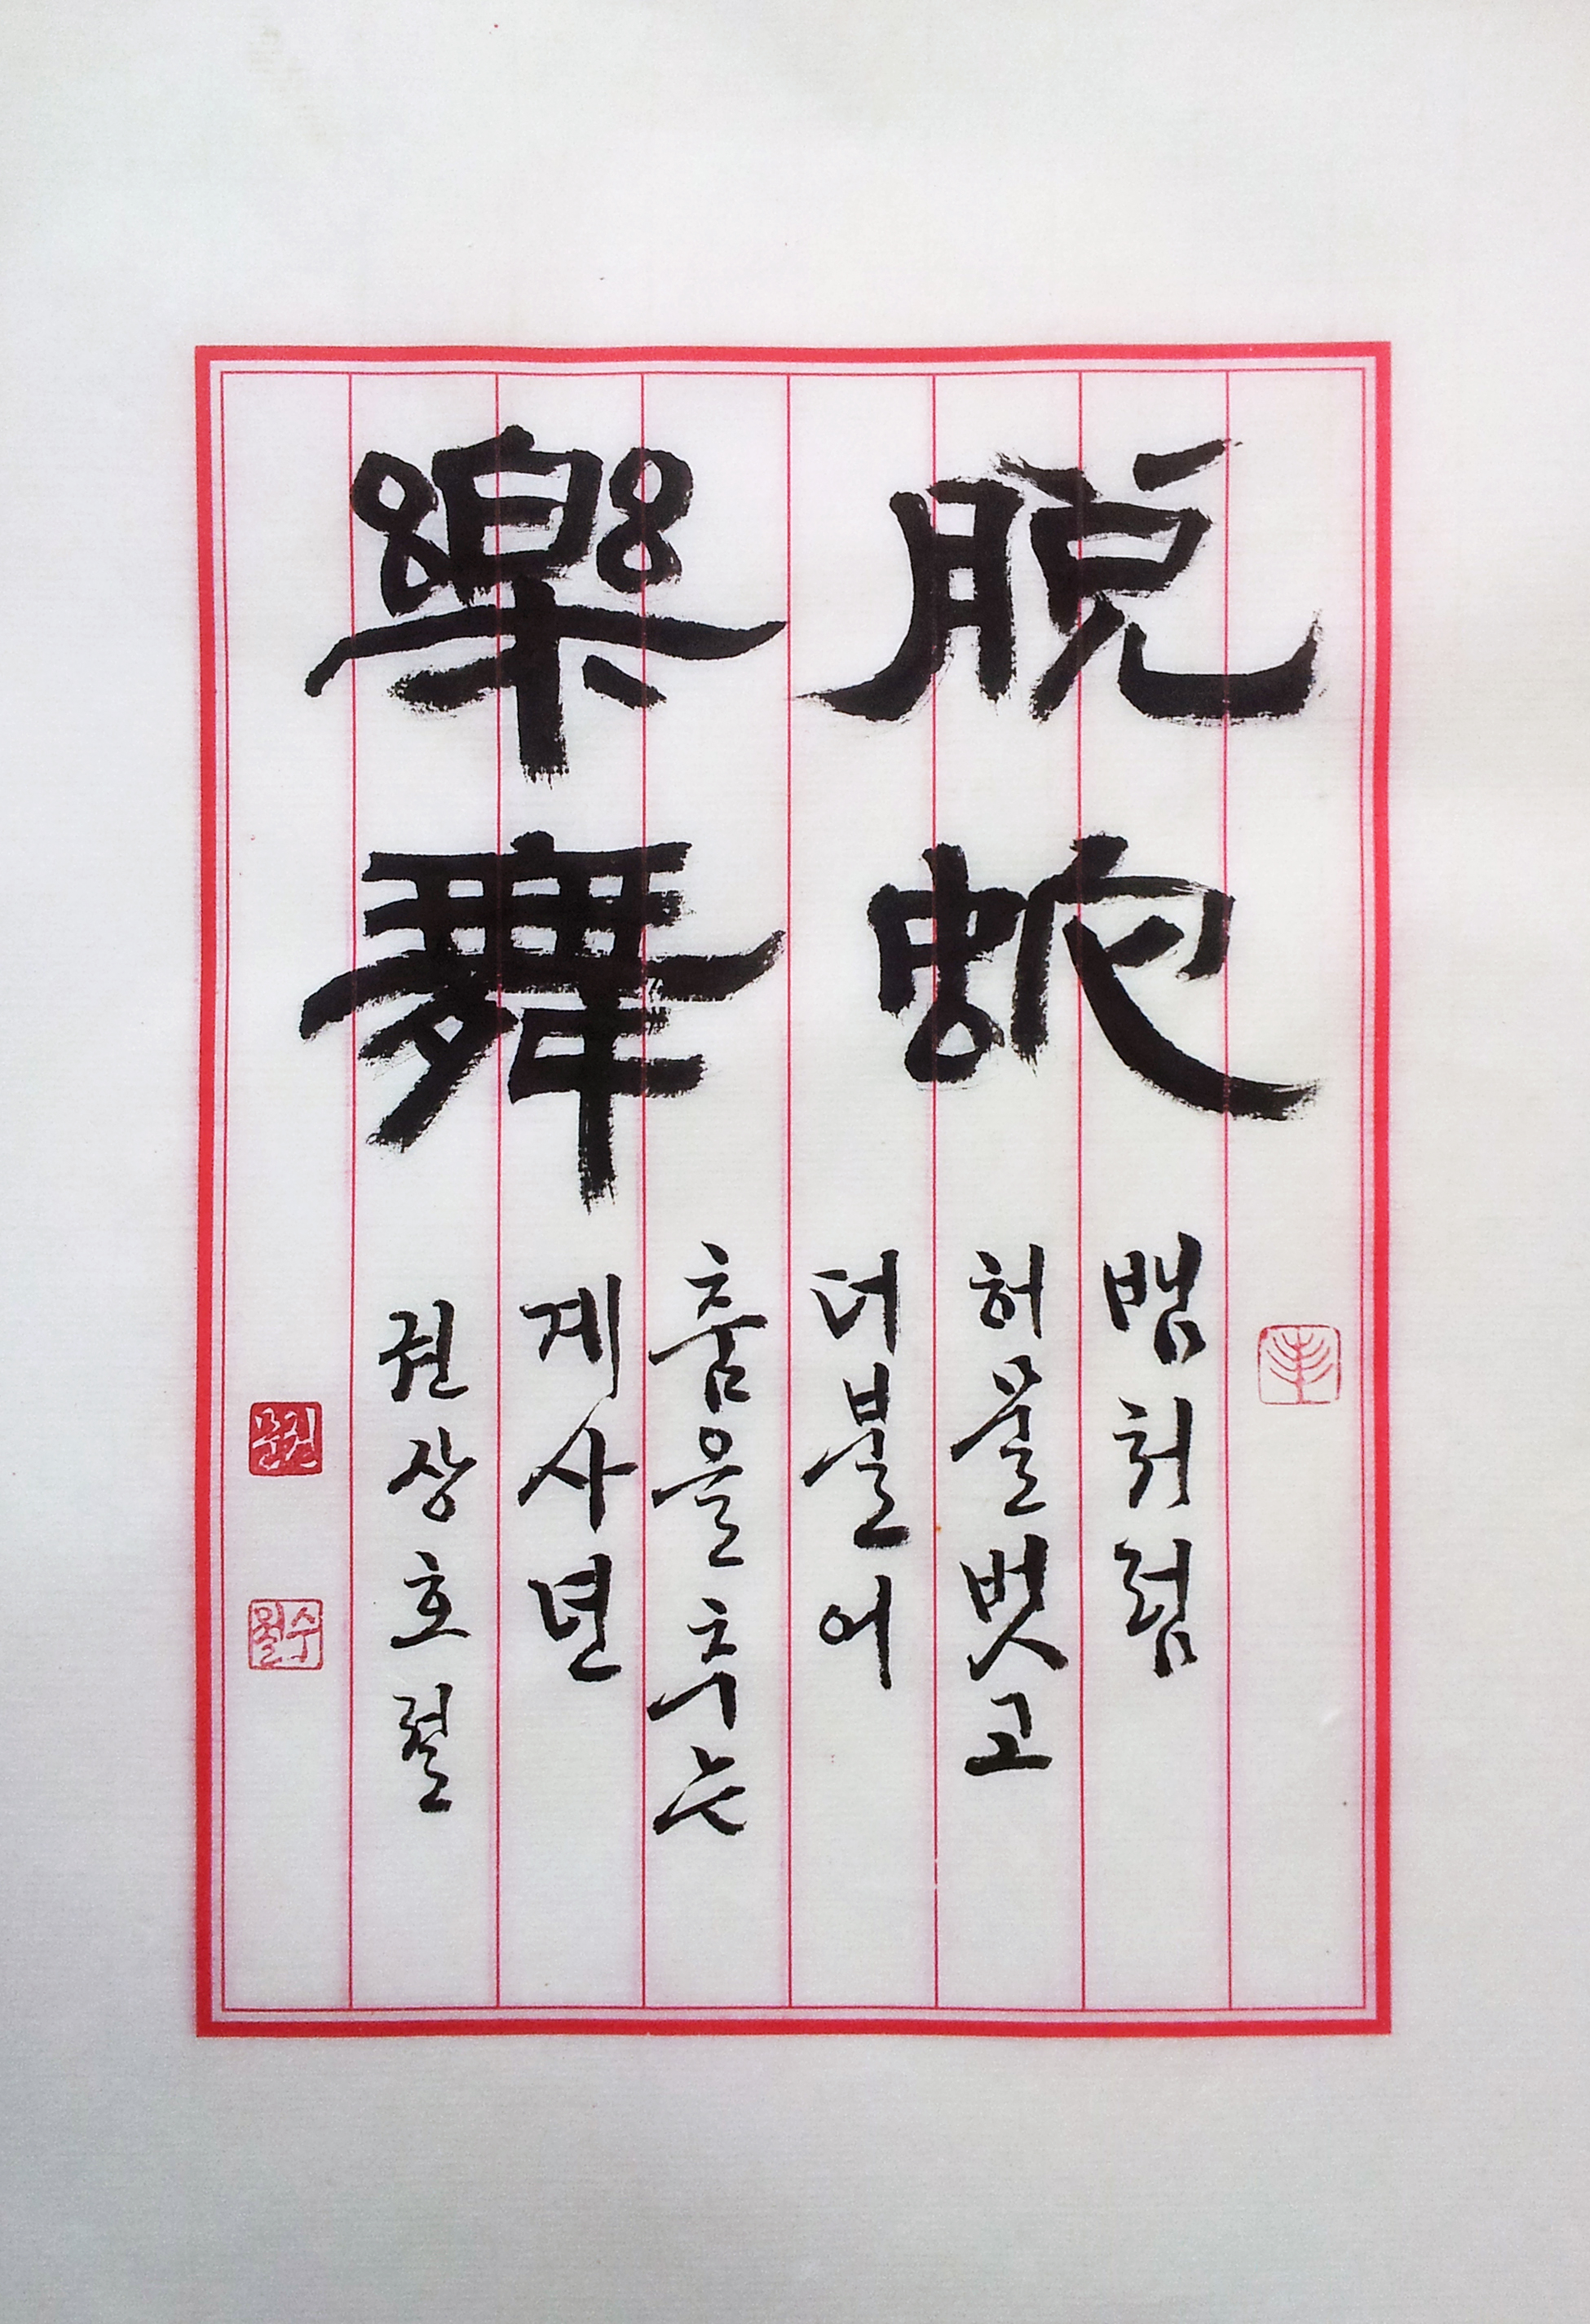 脫蛇
樂舞
뱀처럼
허물벗고
더불어
춤을추는
계사년
권상호절
수월